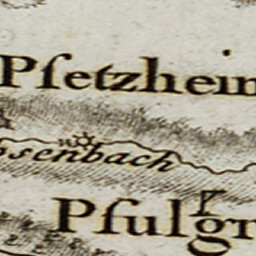 Pſetzhein
ssenbach
Pſulgr